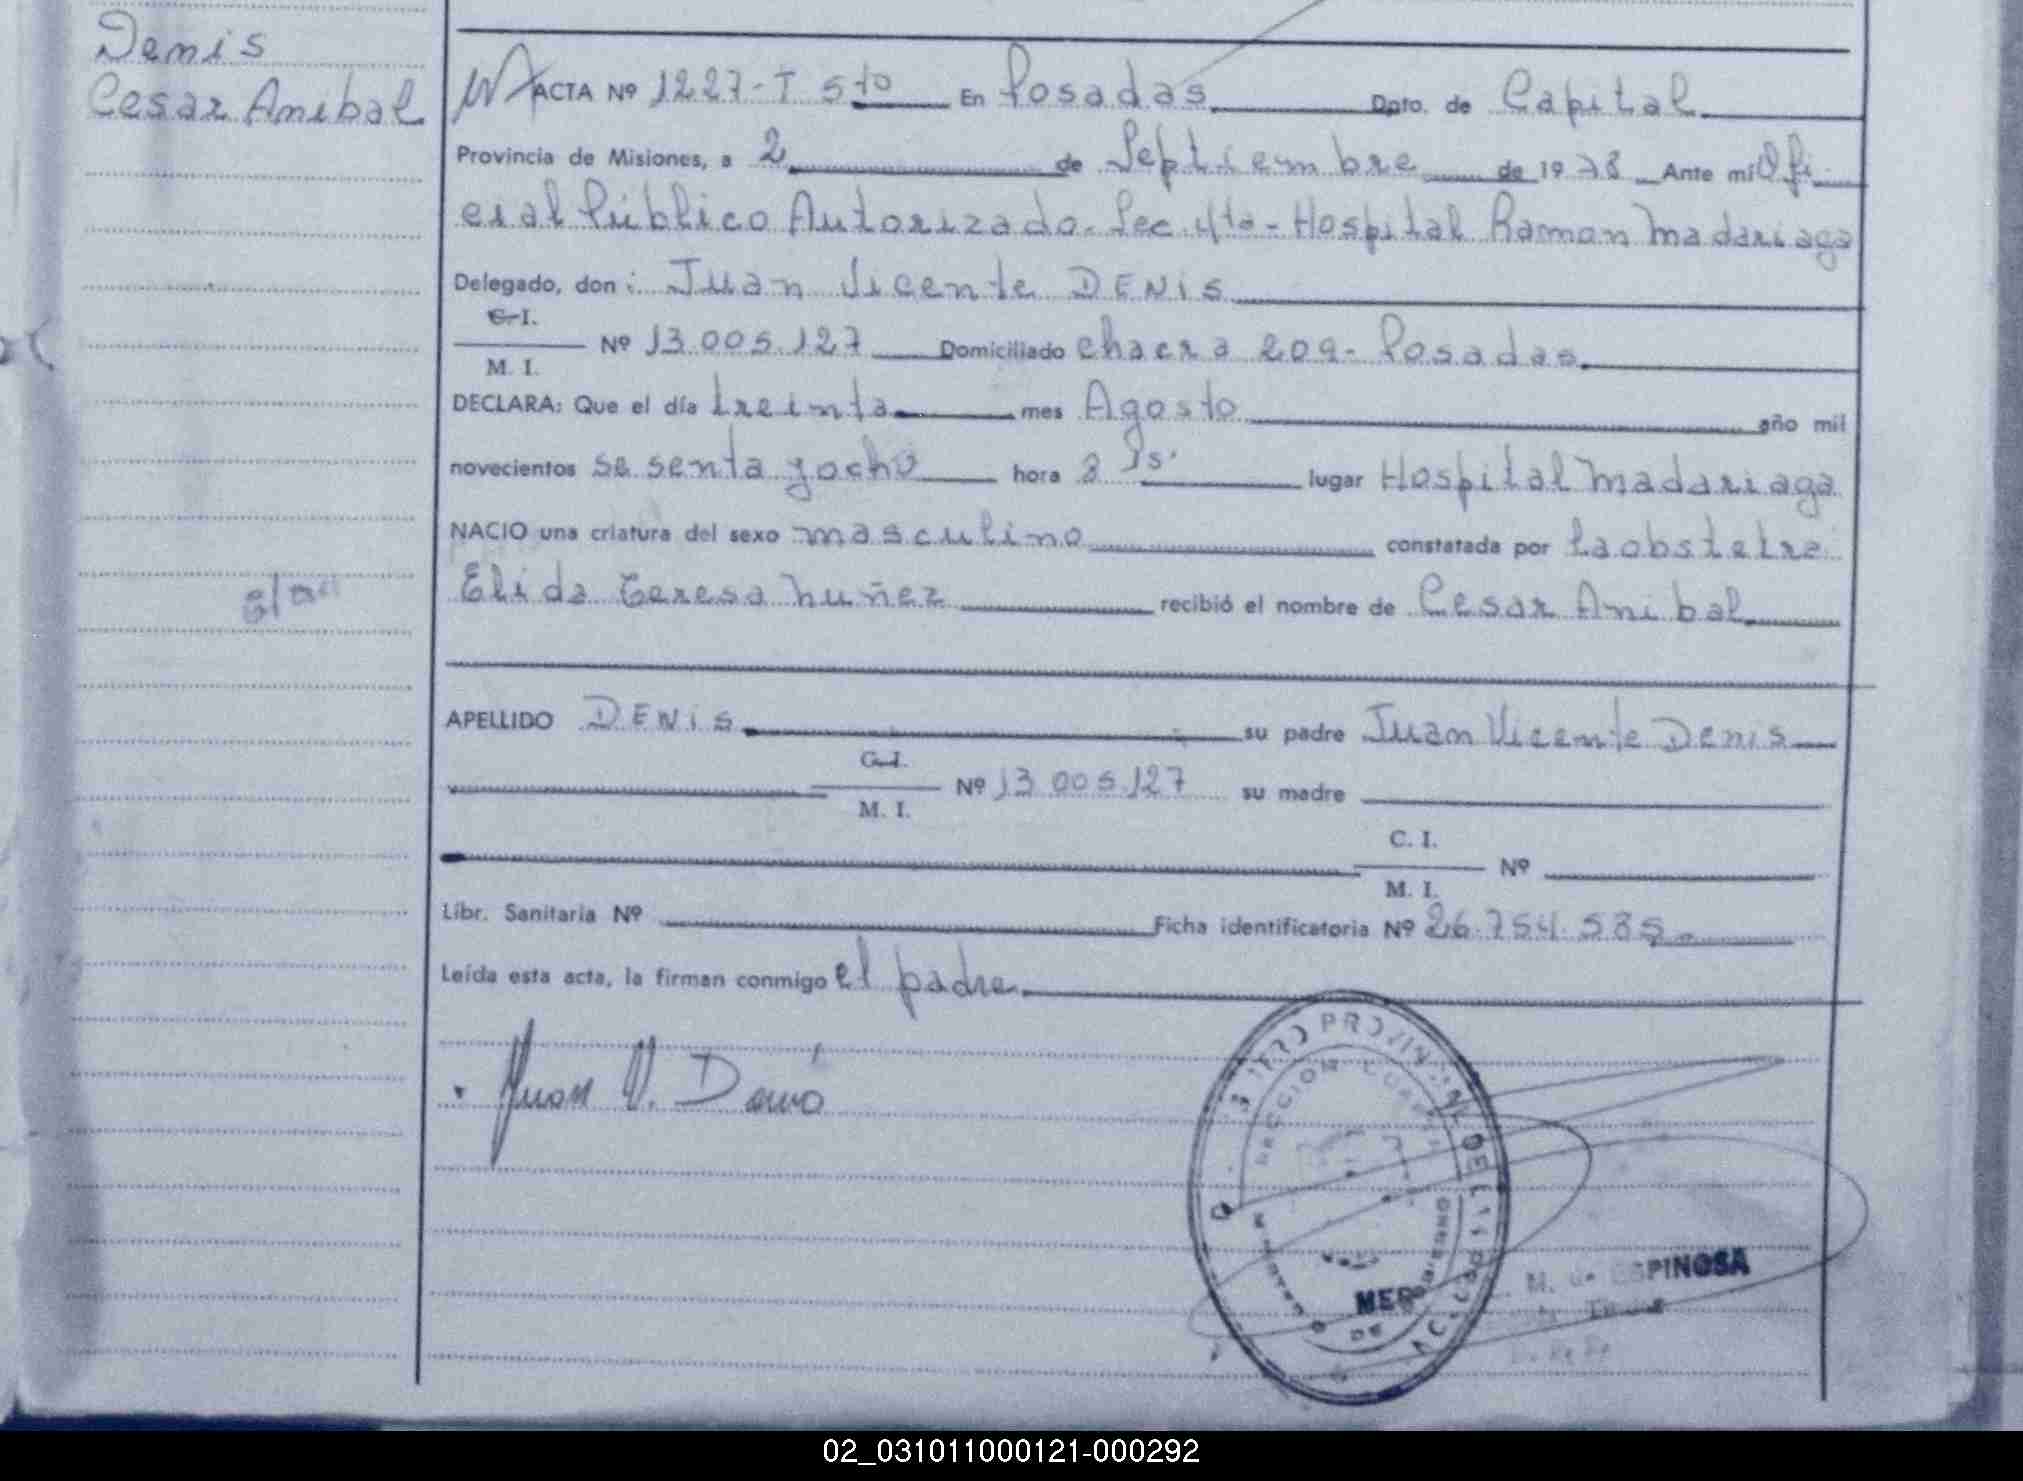 Denis
Cesar Anibal
ACTA Nº 1227-T 5to En Posadas Dpto. de Capital
Provincia de Misiones, a 2 de Septiembre de 1978 Ante mí Ofi
cial Público Autorizado. Sec. 4ta - Hospital Ramon Madariaga
Delegado, don: Juan Vicente DENIS
C. I.
M. I. Nº 13.005.127 Domiciliado chacra 209 - Posadas
DECLARA: Que el día treinta mes Agosto año mil
novecientos sesenta y ocho hora 8 lugar Hospital Madariaga
NACIO una criatura del sexo masculino constatada por la obstetra
Elida Teresa Nuñez recibió el nombre de Cesar Anibal
APELLIDO DENIS su padre Juan Vicente Denis
C. I.
M. I. Nº 13.005.127 su madre
C. I.
M. I. Nº
Libr. Sanitaria Nº Ficha identificatoria Nº 26.754.585
Leída esta acta, la firman conmigo el padre
Juan V. Denis
PROVINCIAL DE
SECCION CUARTA
DE
MER
M. de ESPINOSA
02_031011000121-000292